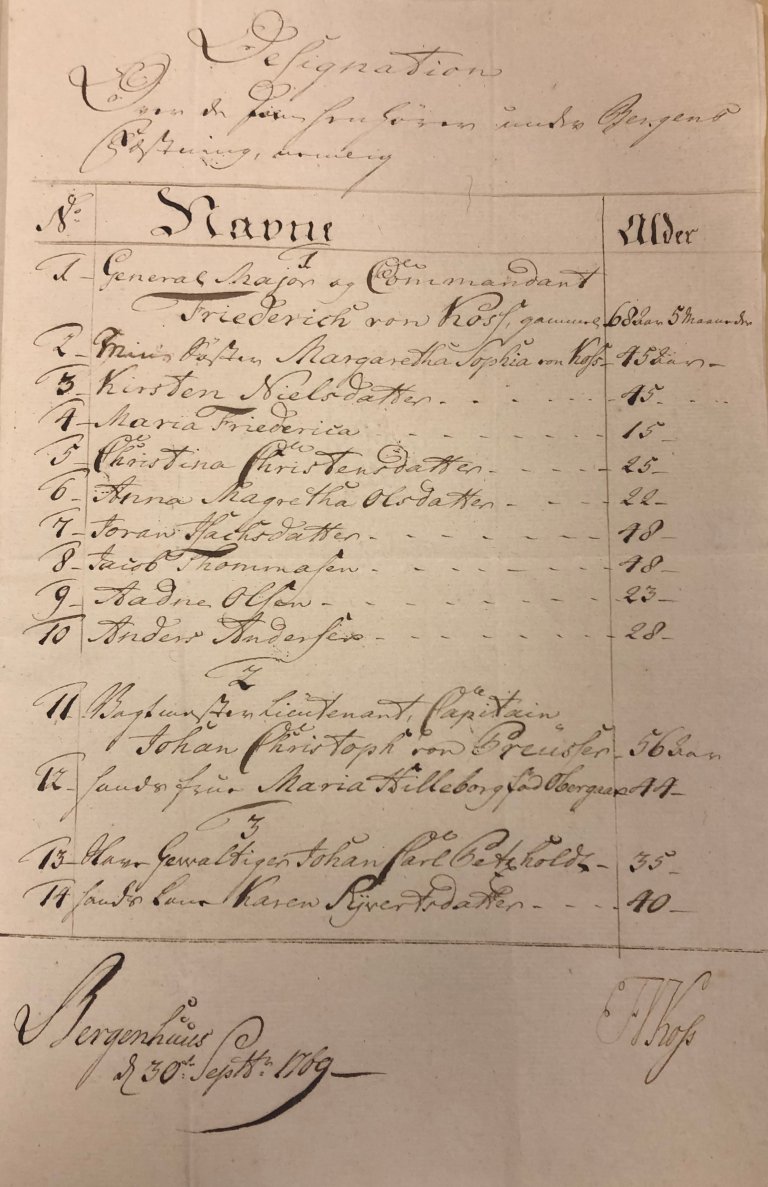 Designation
Over de som henhörer under Bergens
Fæstning, nemlig
No. Navne Alder
1
1 - General Major og Commandant
Friederich von Koss, gammel 68 aar 5 Maaneder
2 - Min Söster Margaretha Sophia von Koss - 45 aar -
3 - Kirsten Nielsdatter - 45 -
4 - Maria Friederica - 15 -
5 - Christina Christensdatter - 25 -
6 - Anna Magretha Olsdatter - 22 -
7 - Joran Isachsdatter - 48 -
8 - Jacob Thommasen - 48 -
9 - Aadne Olsen - 23 -
10 - Anders Andersen - 28 -
2
11 - Vagtmester Lieutenant, Capitain
Johan Christoph von Preüsser - 56 aar
12 - hands frue Maria Hilleborg föd - 44 -
3
13 - Gewaltiger Johan Carl Petzholdt - 35 -
14 - hands kone Karen Syvertsdatter - 40 -
Bergenhuus
d. 30te Septbr: 1769 -
FVKoss